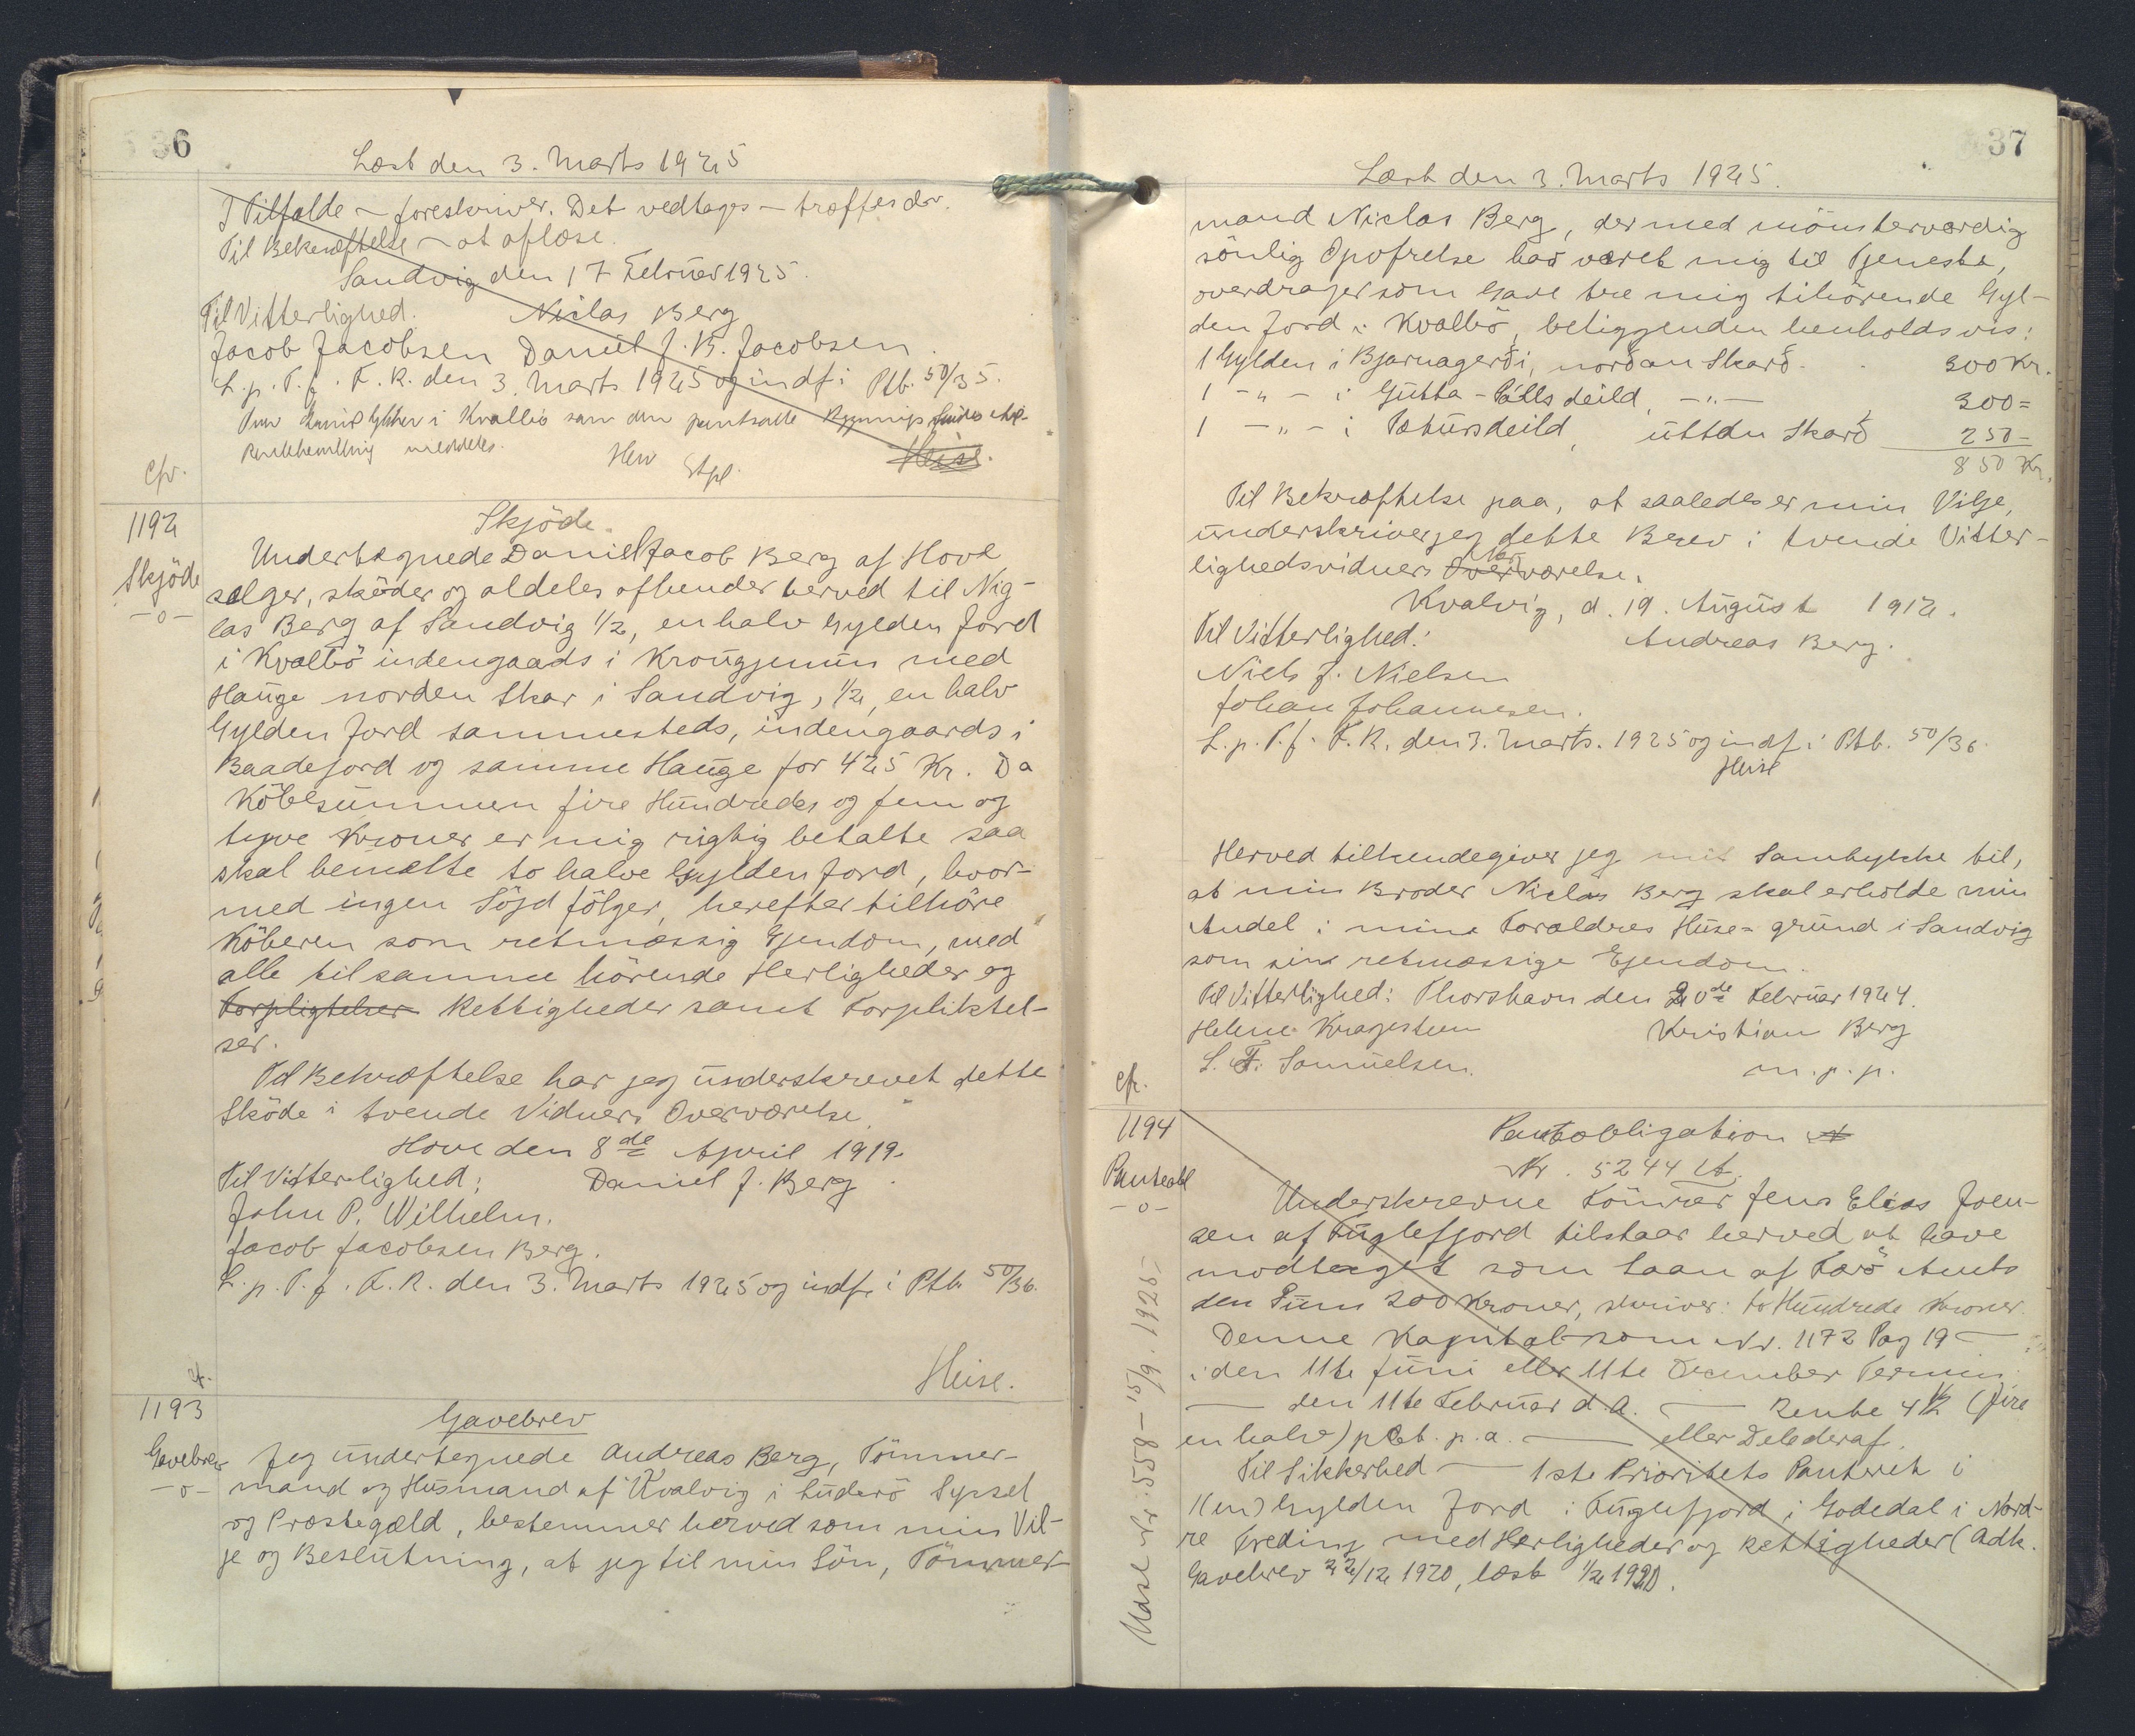 36
Læst den 3. Marts 1925
I Tilfælde — foreskriver. Det vedtages — træffes der.
Til Bekræftelse — at aflæse.
Sandvig den 17 Februar 1925.
Til Vitterlighed. Niclas Berg
Jacob Jacobsen Daniel J. B. Jacobsen.
L. p. T. f. F. R. den 3. Marts 1925 og indf i Ptb. 50/35.
i Kvalbö som den pantsatte
meddeles.
Heise.
cfr.
1192
Skjöde
—o—
Skjöde.
Undertegnede Daniel Jacob Berg af Hove
sælger, sköder og aldeles afhender herved til Nig-
las Berg af Sandvig 1/2, en halv Gylden Jord
i Kvalbö indengaads i Krougjenun med
Hauge norden Skar i Sandvig, 1/2, en halv
Gylden Jord sammesteds, indengaards i
Baadejord og samme Hauge for 425 Kr. Da
Köbesummen fire Hundredes og fem og
tyve Kroner er mig rigtig betalte saa
skal bemelte to halve Gylden Jord, hvor-
med ingen Söjd fölger, herefter tilhöre
Köberen som retmæssig Ejendom, med
alle til samme hörende Herligheder og
Forpligtelser Rettigheder samt Forpliktel-
ser.
Til Bekræftelse har jeg underskrevet dette
Sköde i tvende Vidners Overværelse.
Hove den 8de April 1919.
Til Vitterlighed: Daniel J. Berg.
John P. Wilhelm.
Jacob Jacobsen Berg.
L. p. T. f. F. R. den 3. Marts 1925 og indf. i Ptb. 50/36.
Heise.
1193
Gavebrev
—o—
Gavebrev
Jeg undertegnede Andreas Berg, Tömmer-
mand og Husmand af Kvalvig i Suderö Syssel
og Præstegæld, bestemmer herved som min Vil-
je og Beslutning, at jeg til min Sön, Tömmer-
37
Læst den 3. Marts 1925.
mand Niclas Berg, der med mönsterværdig
sönlig Opofrelse har været mig til Tjeneste,
overdrager som Gave tre mig tilhörende Gyl-
den Jord i Kvalbö, beliggenden henholdsvis:
1 Gylden i Bjarnagerði, norðan Skarð. 300 Kr.
1 -„- i Gutta-Pálls deild, -„- 300=
1 -„- i Pæturs deild, uttan Skarð 250-
850 Kr.
Til Bekræftelse paa, at saaledes er min Vilje,
underskriver jeg dette Brev i tvende Vitter-
lighedsvidners Overværelse.
Kvalvig, d. 19. August 1912.
Til Vitterlighed: Andreas Berg.
Niels J. Nielsen
Johan Johannesen.
L. p. T. f. F. R. den 3. Marts. 1925 og indf i Ptb. 50/36.
Heise
Herved tilkendegiver jeg mit Samtykke til,
at min Broder Niclas Berg skal erholde min
Andel i mine Forældres Huse-grund i Sandvig
som sine retmæssige Ejendom.
Til Vitterlighed: Thorshavn den 20de Februar 1924.
Helene Kragesteen Kristian Berg
S. F. Samuelsen. m. p. p.
cfr.
1194
Panteobl
—o—
Panteobligation
Nr. 5244
Underskrevne Jens Elias Joen-
sen af Fuglefjord tilstaar herved at have
modtaget som Laan af Færö Amts
den Sum 200 Kroner, skriver: to Hundrede Kroner.
Denne Kapital som Nr. 1172 Pag 19 —
i den 11te Juni eller 11te December Termin
— den 11te Februar d. A. — Rente 4 1/2 (fire
en halv) pCt. p. a. — eller Dele deraf.
Til Sikkerhed — 1ste Prioritets Panteret i
1 (en) Gylden Jord i Fuglefjord i Godedal i Nord-
re Freding med Herligheder og Rettigheder (Adk.
Gavebrev 22/12 1920, læst 1/2 1920.
Udsl Nr. 558 — 15/9. 1928